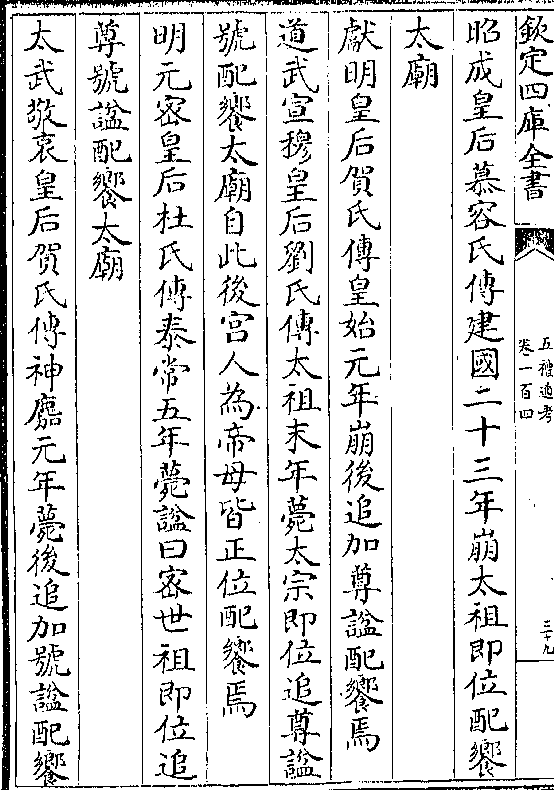 欽定四庫全書
五禮通考
卷一百四
三十九
昭成皇后慕容氏傳建國二十三年崩太祖即位配饗
太廟
獻明皇后賀氏傳皇始元年崩後追加尊諡配饗焉
道武宣穆皇后劉氏傳太祖末年薨太宗即位追尊諡
號配饗太廟自此後宫人為帝母皆正位配饗焉
明元密皇后杜氏傳泰常五年薨諡曰密世祖即位追
尊號諡配饗太廟
太武敬哀皇后賀氏傳神䴥元年薨後追加號諡配饗